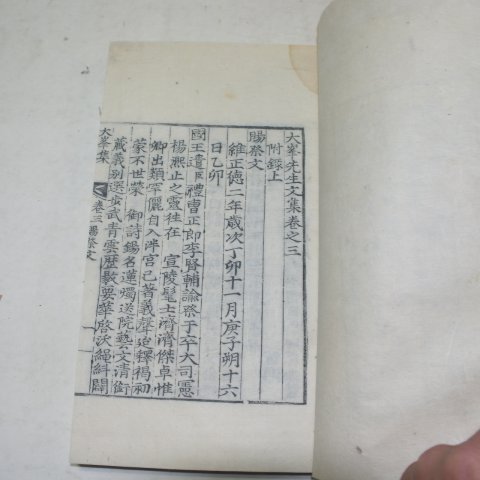 大峯先生文集卷之三
附錄上
賜祭文
維正德二年歲次丁卯十一月庚子朔十六
日乙卯
國王遣臣禮曹正郎李賢輔諭祭于卒大司憲
楊熙止之靈往在 宣陵髦士濟濟傑卓惟
卿出類罕儷自入泮宮已著義聲迨釋褐初
蒙不世榮 御詩錫名蓮燭送院藝文淸銜
藏義別選步武靑雲歷數要華啓沃繩糾闕
大峯集
卷三 賜祭文
一